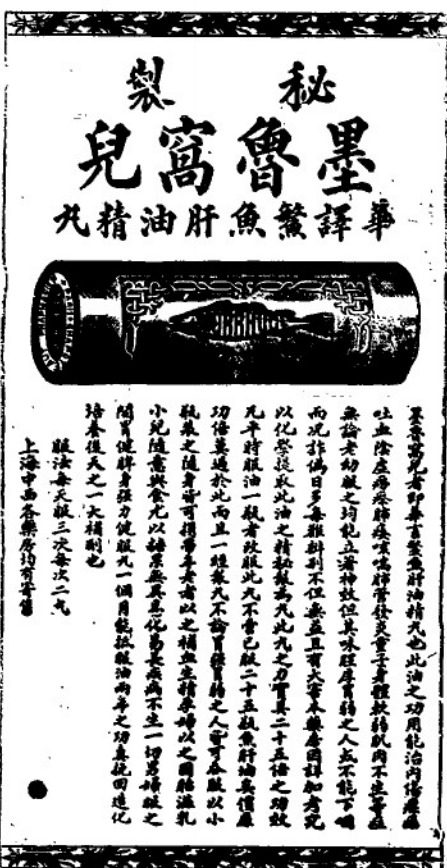 秘製
墨魯窩兒
華譯鱉魚肝油精丸
墨魯窩兒者即華言鱉魚肝油精丸也此油之功用能治內傷
吐血陰虛癆瘵肺痿咳嗽肺管發炎童子身體軟弱肌肉不生等症
無論老幼服之均能立著神效但其味腥厚胃弱之人每不能下咽
而况詐僞日多每難辨別不但無益且有大害本藥房因詳加考究
以化學提取此油之精秘製爲丸此丸之力實具二十五倍之功效
凡平時服油一瓶者改服此丸不啻已服二十五瓶魚肝油其價廉
功倍莫過於此而且一經製丸不論胃強胃弱之人皆可吞服以小
瓶裝之隨身皆可携帶年老者以之補血生精產婦以之固胎滋乳
小兒隨意與食尤以糖無異易長疾病不生一切男婦服之
開胃健脾身強力健服丸一個月能抵服油兩年之功眞挽回造化
培養後天之一大補劑也
服法每天服三次每次二丸
上海中西各藥房均有寄售